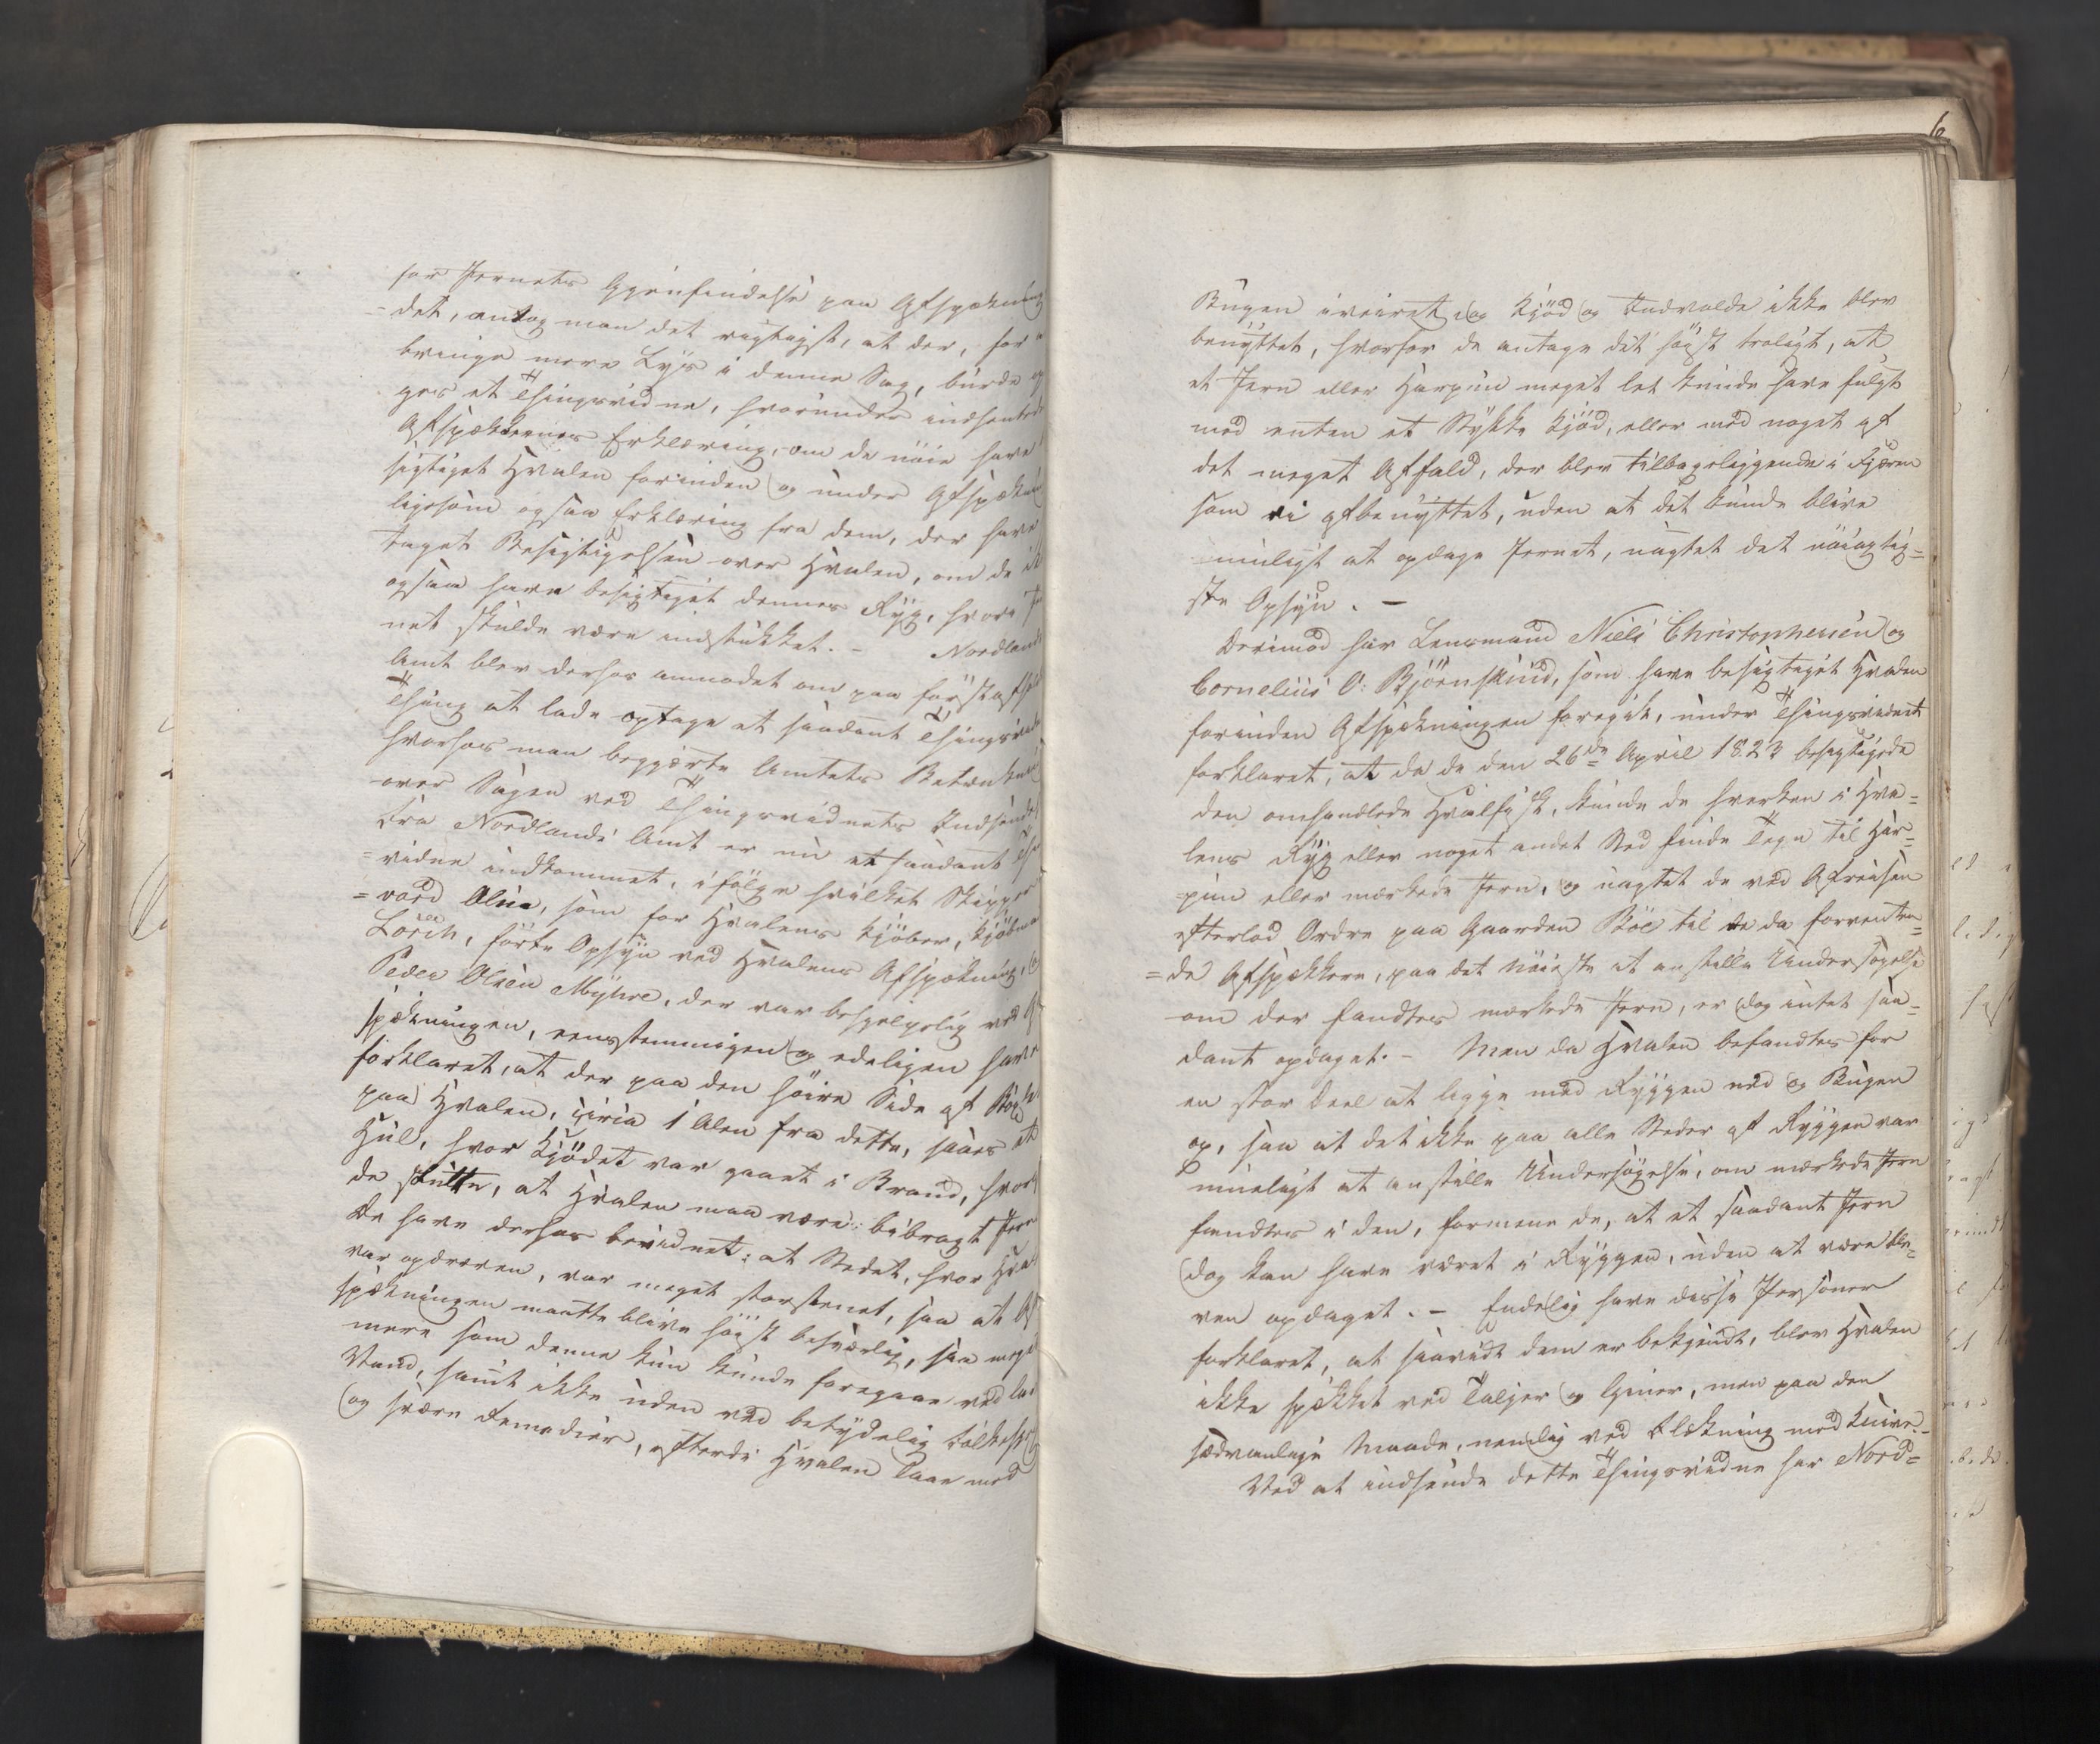 for Jernets Gjenfindelse paa Afspækning
det, antog man det rigtigst, at der, for
bringe mere Lys i denne Sag, burde op
ges et Thingsvidne, hvorunder indhentede
Afspækkernes Erklæring, om de nøie have
sigtiget Hvalen forinden og under Afspækn
ligesom ogsaa Erklæring fra dem, der have
taget Besigtigelsen over Hvalen, om de
ogsaa have besigtiget dennes Ryg, hvori
net skulde være indstukket. - Nordlands
Amt blev derhos anmodet om paa første
Thing at lade optage et saadant Thingsvid
hvorhos man begjærte Amtets Betænkn
over Sagen ved Thingsvidnets Indsendel
Fra Nordlands Amt er nu et saadant
vidne indkommet, ifølge hvilket Skipper
=vard Olsen, som for Hvalens Kjøber, Kjøbm
Lorch, førte Opsyn ved Hvalens Afspækning,
Peder Olsen Myhre, der var behjelpelig ved
spækningen, eenstemmigen og edeligen have
forklaret, at der paa den høire Side af
paa Hvalen, circa 1 Alen fra dette, saaes et
Hul, hvor Kjødet var gaaet i Brand, hvor
de slutte, at Hvalen maa være bibragt Jern
De have derhos bevidnet: at Stedet, hvor Hval
var opdreven, var meget storstenet, saa at
spækningen maatte blive høist besværlig, saa meget
mere som denne kun kunde foregaae ved lav
Vand, samt ikke uden ved betydelig Folkehjelp
og svære Remedier, efterdi Hvalen laae med
6
Bugen iveiret, og Kjød og Indvolde ikke blev
benyttet, hvorfor de antage det høist troligt, at
et Jern eller Harpun meget let kunde have fulgt
med enten et Stykke Kjød, eller med noget af
det meget Affald, der blev tilbageliggende i Fjæren
som ei afbenyttet, uden at det kunde blive
muligt at opdage Jernet, uagtet det nøiagtig=
ste Opsyn. -
Derimod har Lensmand Niels Christophersen og
Cornelius O: Bjørnskind, som have besigtiget Hvalen
forinden Afspækningen foregik, under Thingsvidnet
forklaret, at da de den 26de April 1823 besigtigede
den omhandlede Hvalfisk, kunde de hverken i Hva=
lens Ryg eller noget andet Sted finde Tegn til Har=
pun eller mærkede Jern, og uagtet de ved Afreisen
efterlod Ordre paa Gaarden Böe til de da forventen=
=de Afspækkere, paa det nøieste at anstille Undersøgelse
om der fandtes mærkede Jern, er dog intet saa=
dant opdaget. - Men da Hvalen befandtes for
en stor Deel at ligge med Ryggen ned og Bugen
op, saa at det ikke paa alle Steder af Ryggen var
mueligt at anstille Undersøgelse, om mærkede Jern
fandtes i den, formene de, at et saadant Jern
dog kan have været i Ryggen, uden at være ble=
ven opdaget. - Endelig have disse Personer
forklaret, at saavidt dem er bekjendt, blev Hvalen
ikke spækket ved Taljer og Giner, men paa den
sædvanlige Maade, nemlig ved Flækning med Knive. -
Ved at indsende dette Thingsvidne har Nord=